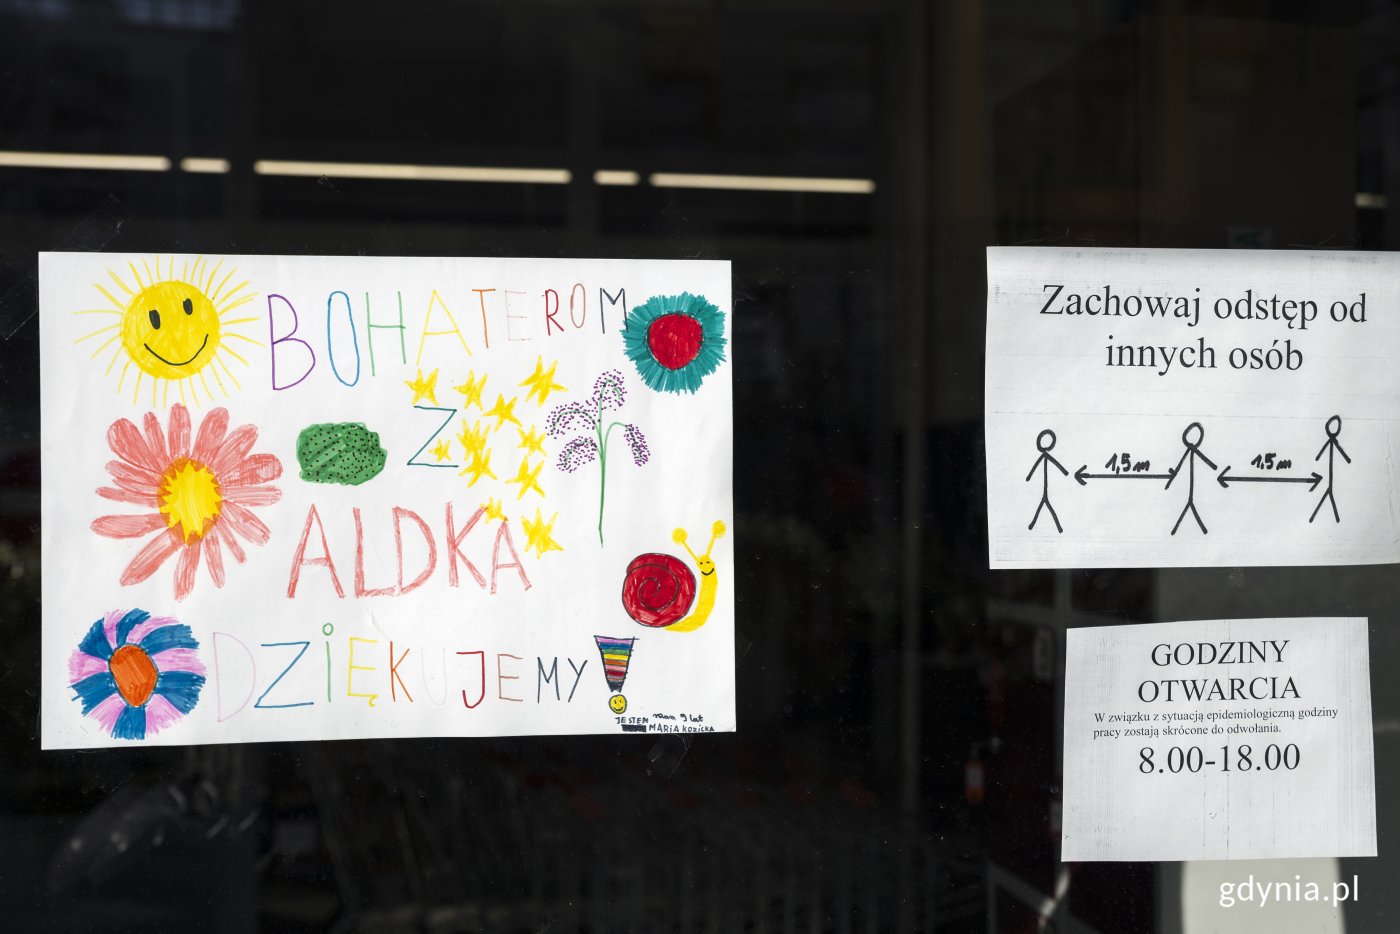 BOHATEROM
Z
ALDKA
DZIĘKUJEMY!
JESTEM mam 9 lat
MARIA KOZICKA
Zachowaj odstęp od
innych osób
1,5m 1,5m
GODZINY
OTWARCIA
W związku z sytuacją epidemiologiczną godziny
pracy zostają skrócone do odwołania.
8.00-18.00
gdynia.pl